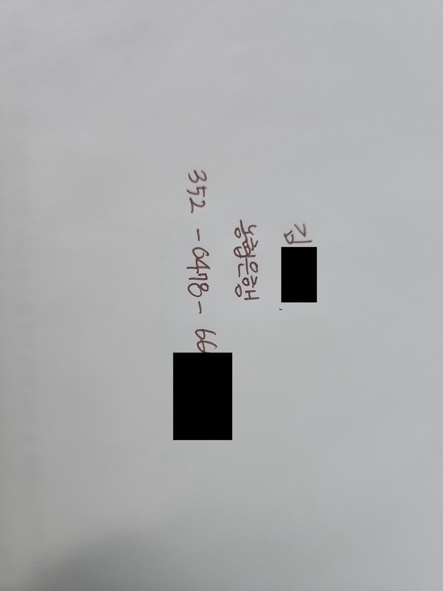 김
농협은행
352-0478-66